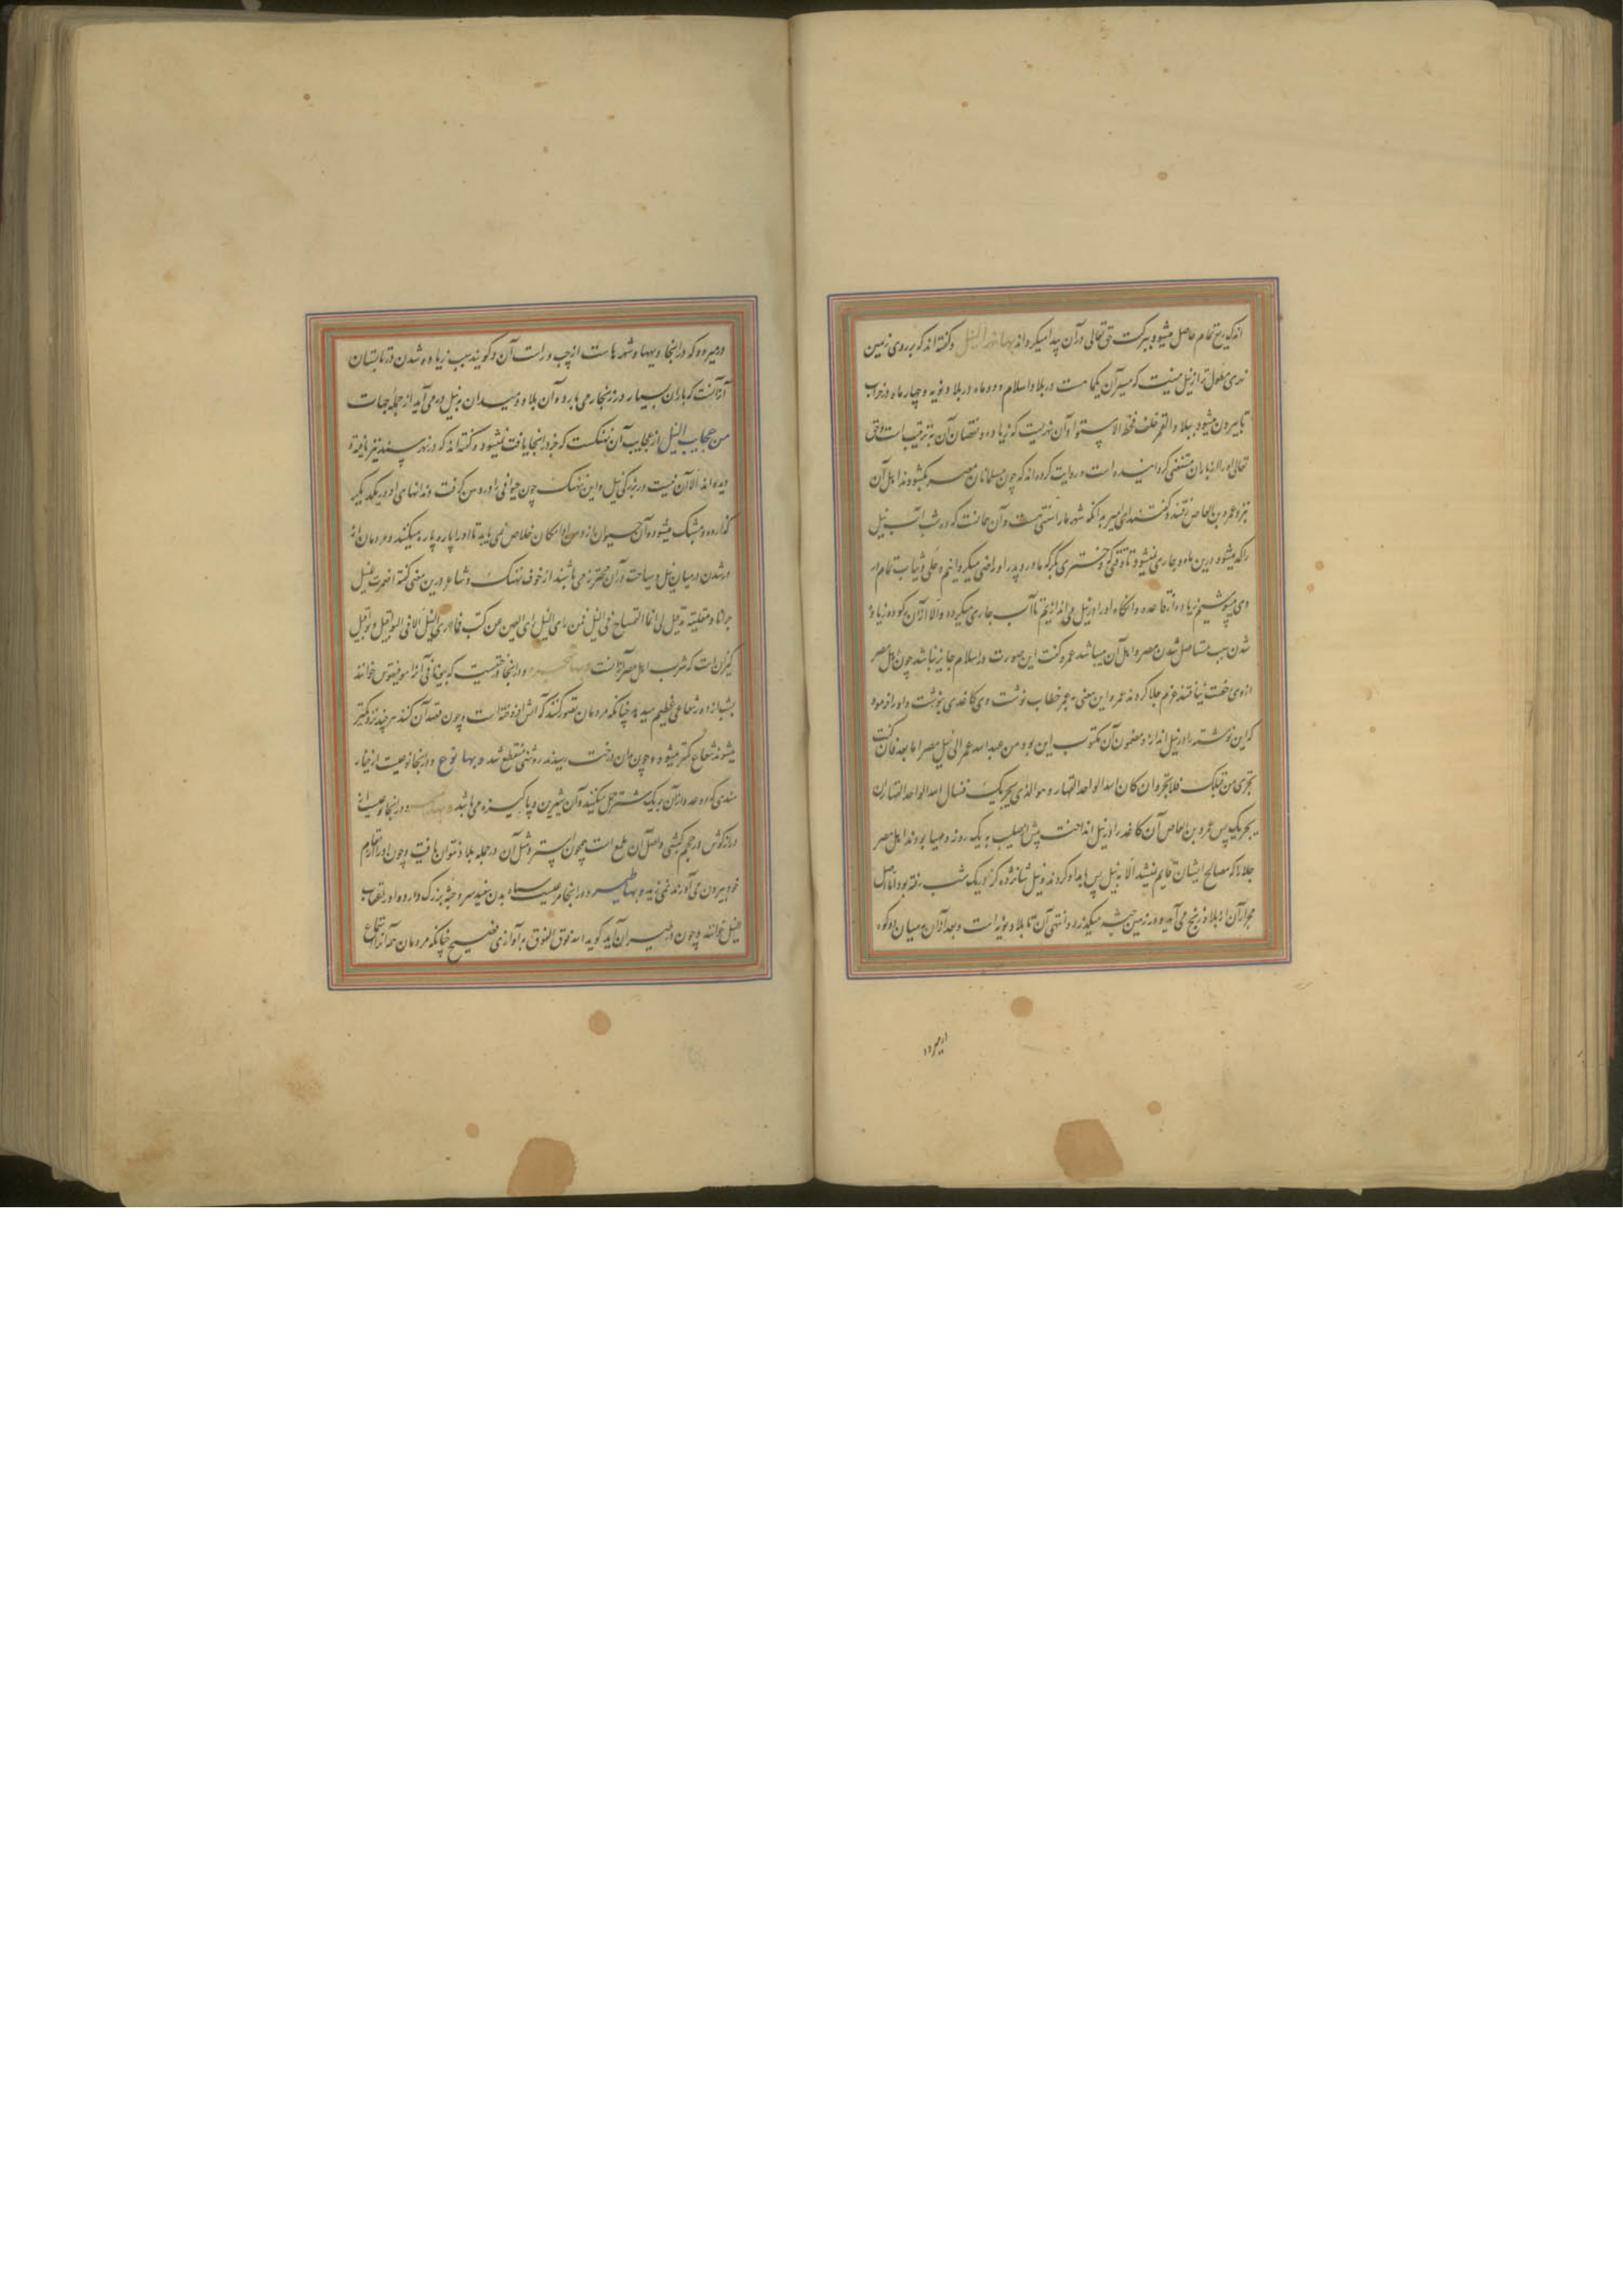 اندک ریع تمام حاصل میشود و ببرکت حق تعالی در آن پیدا میگرداند و بها نهر النیل و گفته‌اند که بر روی زمین
نهری مطول‌تر از نیل نیست که مسیر آن یکماهست در بلاد اسلام و دو ماه در بلاد نوبه و چهار ماه در خراب
تا بیرون میشود ببلاد القمر خلف خط الاستوا و آن نهریست که زیاده و نقصان آن بترتیب است و حق
تعالی او را از باران مستغنی گردانیده است و روایت کرده‌اند که چون مسلمانان مصر بگشودند اهل آن
نزد عمرو بن العاص رفتند و گفتند ای امیر بدانکه شهر ما را سنتی هست و آن چنانست که در شب آب نیل
راکد میشود درین ماه و جاری نمیشود تا وقتی که دختری بکر که مادر و پدر او راضی میگردانیم و حلی و ثیاب تمام در
وی میپوشیم زیاده از قاعده و آنگاه او را در نیل می‌اندازیم تا آب جاری میگردد و الا از آن رکود و زیاد
شدن سبب مستاصل شدن مصر و اهل آن میباشد عمرو گفت این صورت در اسلام جایز نباشد چون اهل مصر
ازوی رخصت نیافتند عزم جلا کردند عمرو این معنی به عمر خطاب نوشت وی کاغدی بنوشت و او را فرمود
که این نوشته را در نیل انداز و مضمون آن مکتوب این بود من عبد الله عمر الی نیل مصر اما بعد فان کنت
تجری من قبلک فلا تجر و ان کان الله الواحد القهار و هو الذی یجریک فنسال الله الواحد القهار ان
یجریک پس عمرو بن العاص آن کاغد را در نیل انداخت پیش از صلیب به یک روز و مهیا بودند اهل مصر
جلا را که مصالح ایشان قایم نمیشد الا به نیل پس بامداد کردند و نیل شانزده گز در یک شب رفته بود اما اصل
مجرا آن از بلاد زنج می‌آید و در زمین حبشه میگذرد و انتهی آن تا بلاد نوبه است و بعد از آن در میان دو کوه
در میرود که در اینجا دیهها و شهرهاست از چپ و راست آن و گویند سبب زیاده شدن در تابستان
آنست که باران بسیار در زنجبار می‌بارد و آن بلاد و میدان به نیل در می‌آید از جمله جهات
من عجایب النیل از عجایب آن نهنگست که جز در اینجا یافت نمیشود و گفته‌اند که در نهر سند نیز نافه
دیده‌اند الا آن نیست در بزرگی نیل و این نهنگ چون حیوانی را در دهن گرفت دندانهای او در یکدیگر
گذارده و مشبک میشود و آن حیوان را از دهن او امکان خلاص نمی‌یابد تا او را پاره پاره میکنند و مردمان از
در شدن در میان نیل و سیاحت در آن محترز می‌باشند از خوف نهنگ و شاعر درین معنی گفته اضمرت للنیل
هجرانا و مقلیة مذ قیل لی انما التمساح فی النیل فمن رای النیل رای العین من کثب فما اری النیل الا فی البواقیل و بواقیل
کیزان است که شرب اهل مصر از آنست و بها شجر و در اینجا درختیست که به یونانی آنرا مومیقوس خوانند
بشب از وی شعاعی عظیم پدید آید چنانکه مردمان تصور کنند که آتش افروخته است و چون قصد آن کنند هر چند نزدیکتر
میشوند شعاع کمتر میشود و چون بدان درخت رسند روشنی منقطع شد و بها نوع و در اینجا نوعیست از خیار
هندی که دو عدد از آن به یک شتر حمل میکنند و آن شیرین و پاکیزه می‌باشد و بها و در اینجا نوعیست از
درازگوش در حجم کبشی و اصل آن ملمع است همچون استر و مثل آن در جمله بلاد نتوان یافت و چون او را از مقام
خود بیرون می‌آورند نمی‌زید و بها طیر و در اینجا مرغیست سیاه بدن سفید سر و جثه بزرگ دارد و او را عقاب
النیل خوانند و چون در طیران آید گوید الله فوق الفوق به آوازی فصیح چنانکه مردمان همه آنرا استماع
در میرود